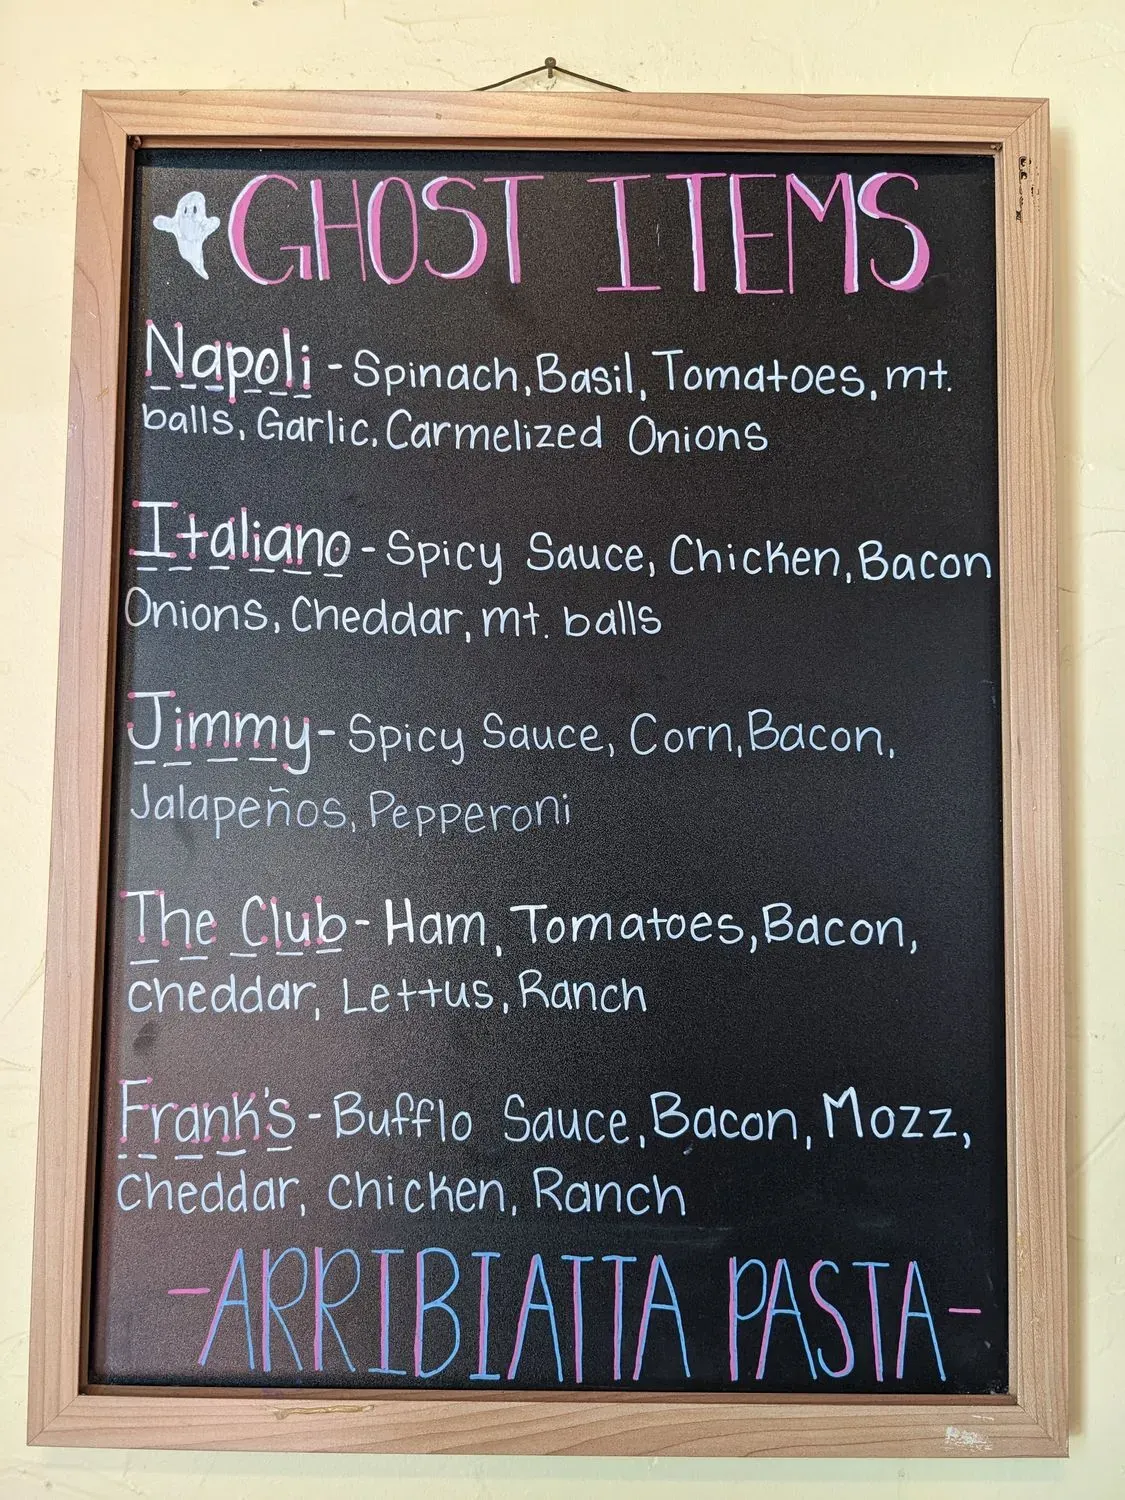 GHOST ITEMS
Napoli - Spinach, Basil, Tomatoes, mt.
balls, Garlic, Carmelized Onions
Italiano - Spicy Sauce, Chicken, Bacon
Onions, Cheddar, mt. balls
Jimmy - Spicy Sauce, Corn, Bacon,
Jalapeños, Pepperoni
The Club - Ham, Tomatoes, Bacon,
cheddar, Lettus, Ranch
Frank's - Bufflo Sauce, Bacon, Mozz,
Cheddar, Chicken, Ranch
- ARRIBIATTA PASTA -